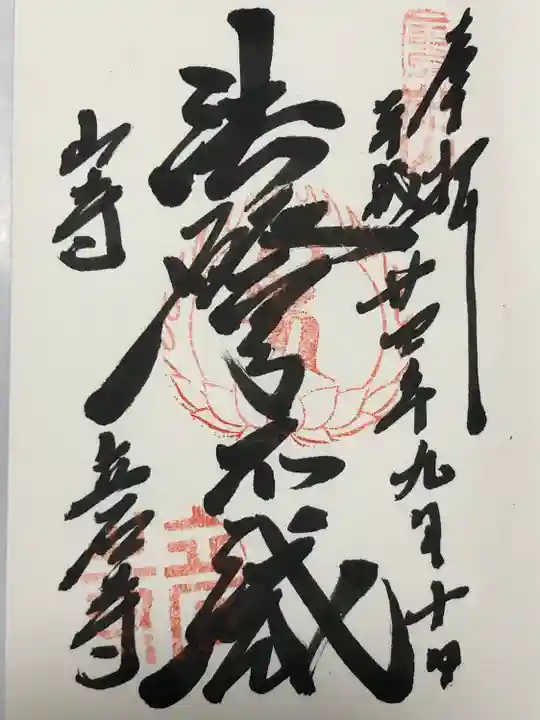 奉拝
平成廿七年九月十日
法燈不滅
山寺
立石寺